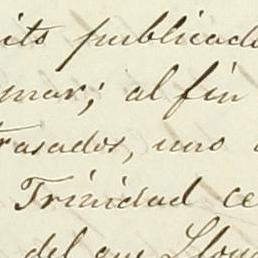 its publicado
mar; al fin
rasados, uno
Trinidad ce
del que Llon